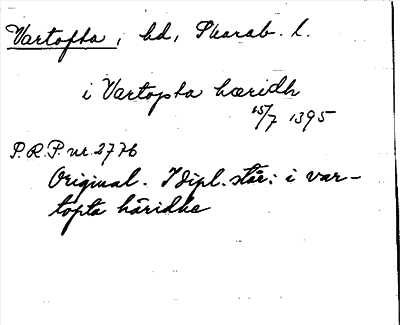 Vartofta, hd, Skarab. l.
i Vartopta hæridh
15/7 1395
P.R.P. nr. 2776
Original. I dipl. står: i var-
topta häridhe